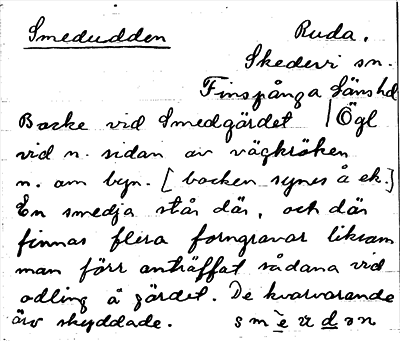 Smedudden Ruda.
Skedevi sn.
Finspånga Länshd
Backe vid Smedgärdet Ögl
vid n. sidan av vägkröken
n. om byn. [backen synes å ek.]
En smedja står där, och där
finnas flera forngravar liksom
man förr anträffat sådana vid
odling å gärdet. De kvarvarande
äro skyddade.